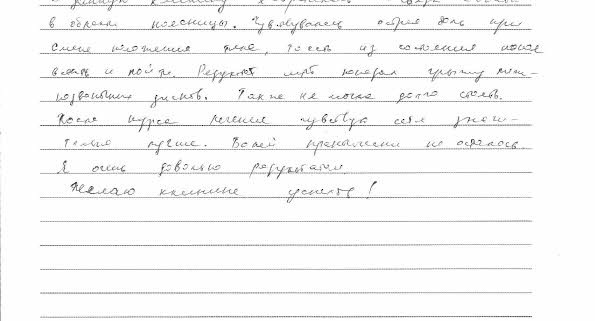 в данную клинику обратилась
в области поясницы. Чувствовалась острая боль при
смене положения тела, то есть из состояния покоя
встать и пойти. Результат мрт показал грыжу меж-
позвоночных дисков. Также не могла долго стоять.
После курса лечения чувствую себя значи-
тельно лучше. Болей практически не осталось.
Я очень довольна результатом
Желаю клинике успехов!